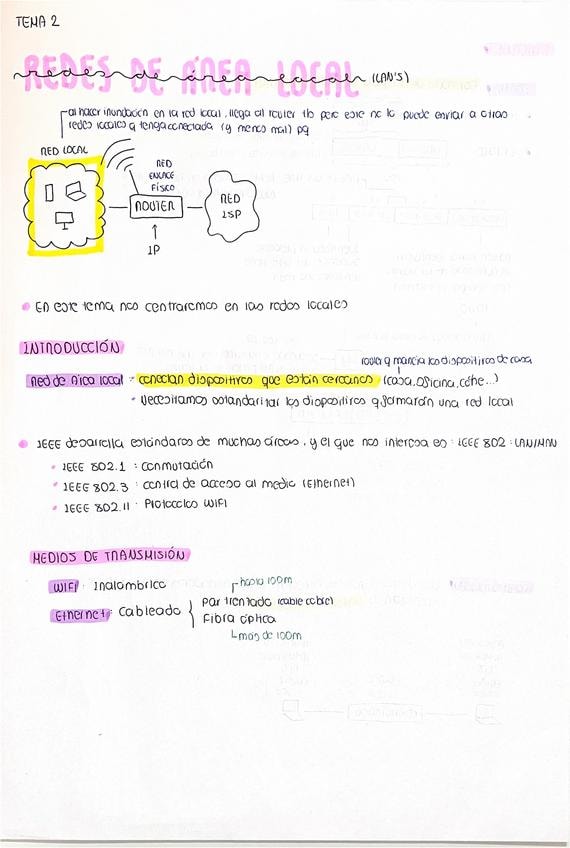 TEMA 2
REDES DE ÁREA LOCAL
redes de área local (LAN'S)
al hacer inundación en la red local, llega al router tb pero este no lo puede enviar a otras
redes locales q tenga conectada (y menos mal) pq
RED LOCAL
RED
ENLACE
FÍSICO
ROUTER
RED
ISP
IP
En este tema nos centraremos en las redes locales
INTRODUCCIÓN
router q maneja los dispositivos de casa
Red de Área local - conectan dispositivos que están cercanos (casa, oficina, coche...)
Necesitamos estandarizar los dispositivos q formarán una red local
IEEE desarrolla estándares de muchas áreas, y el que nos interesa es: IEEE 802: LAN/MAN
IEEE 802.1 : Conmutación
IEEE 802.3 : control de acceso al medio (Ethernet)
IEEE 802.11 : Protocolos WIFI
MEDIOS DE TRANSMISIÓN
WIFI: Inalámbrico
hasta 100m
Ethernet: Cableado
Par trenzado (cable cobre)
Fibra óptica
más de 100m